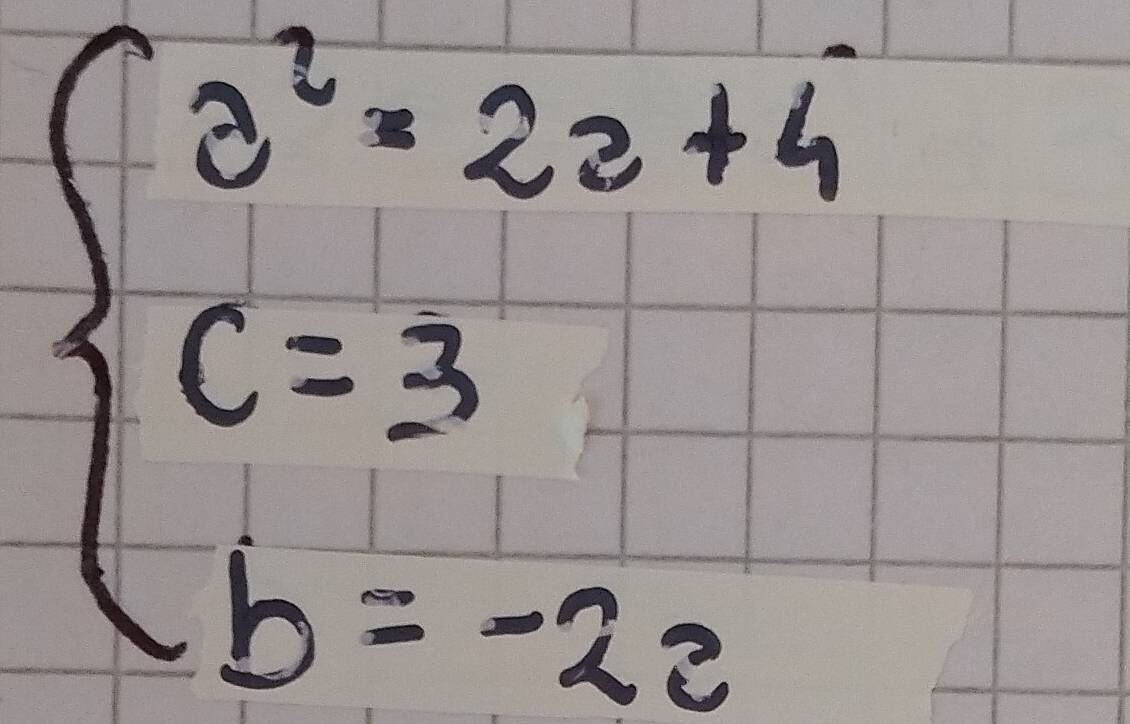 a² = 2a + 4
c = 3
b = -2a